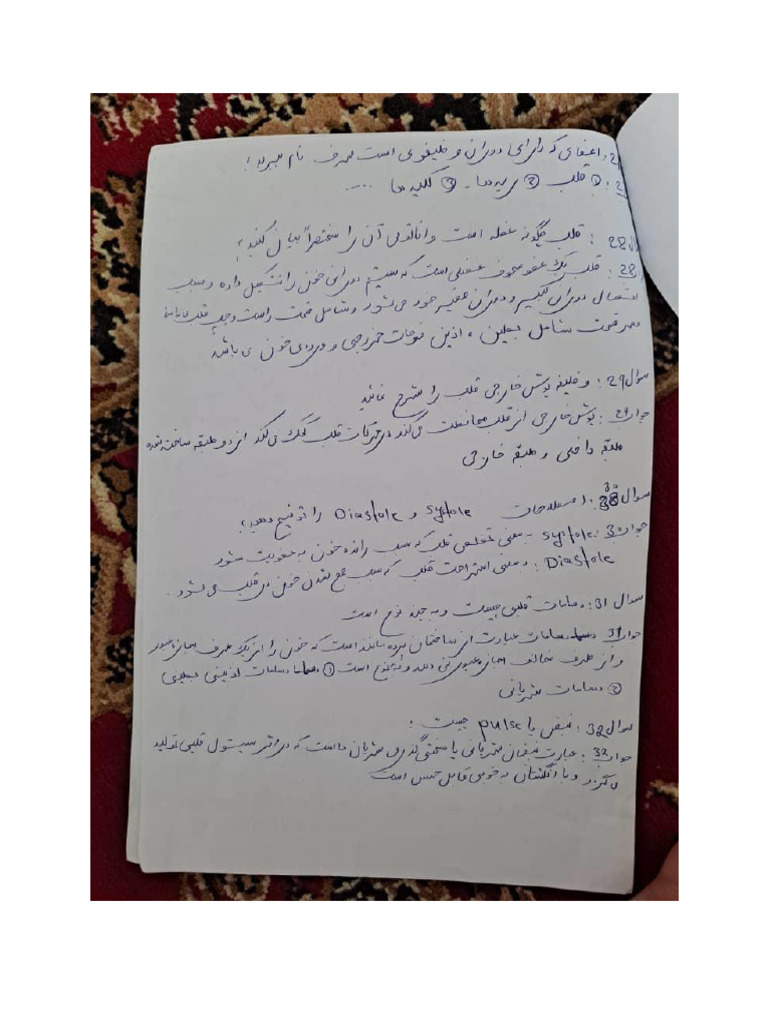 اعضای که دارای دوران وظیفوی است صرف نام ببرید؛
① قلب ② ریه ها ③ کلیه ها .....
سوال 28: قلب چگونه عضله است و اناتومی آن را مختصراً بیان کنید؛
28: قلب یک عضو مجوف عضلی است که سیستم دورانی خون را تشکیل داده و سبب
دوران کبیر و دوران صغیر خود می‌شود و شامل قسمت راست و چپ قلب می باشد
هر قسمت شامل بطین، اذین فوحات خروجی و ورودی خون می باشد
سوال 29: وظیفه پوش خارجی قلب را شرح نمائید
جواب 29: پوش خارجی از قلب محافظت می کند در حرکات قلب کمک می کند از دو طبقه ساخته شده
طبقه داخلی و طبقه خارجی
سوال 30: اصطلاحات systole و Diastole را توضیح دهید؛
جواب 30: systole به معنی تقلص قلب که سبب رانده خون به میشود
Diastole: به معنی استراحت قلب که سبب جمع شدن خون در قلب می شود.
سوال 31: دسامات قلبی چیست و به چند نوع است
جواب 31: دسامات عبارت از ساختمان پرده مانند است که خون را از یک طرف اجازه عبور
و از طرف مخالف اجازه عبور نمی دهد و به نوع است ① دسامات اذینی بطینی
② دسامات شریانی
سوال 32: نبض یا pulse چیست؛
جواب 32: عبارت نبضان شریانی یا شریان ها است که در اثر سیستول قلبی تولید
می گردد و با انگشتان به خوبی قابل حس است